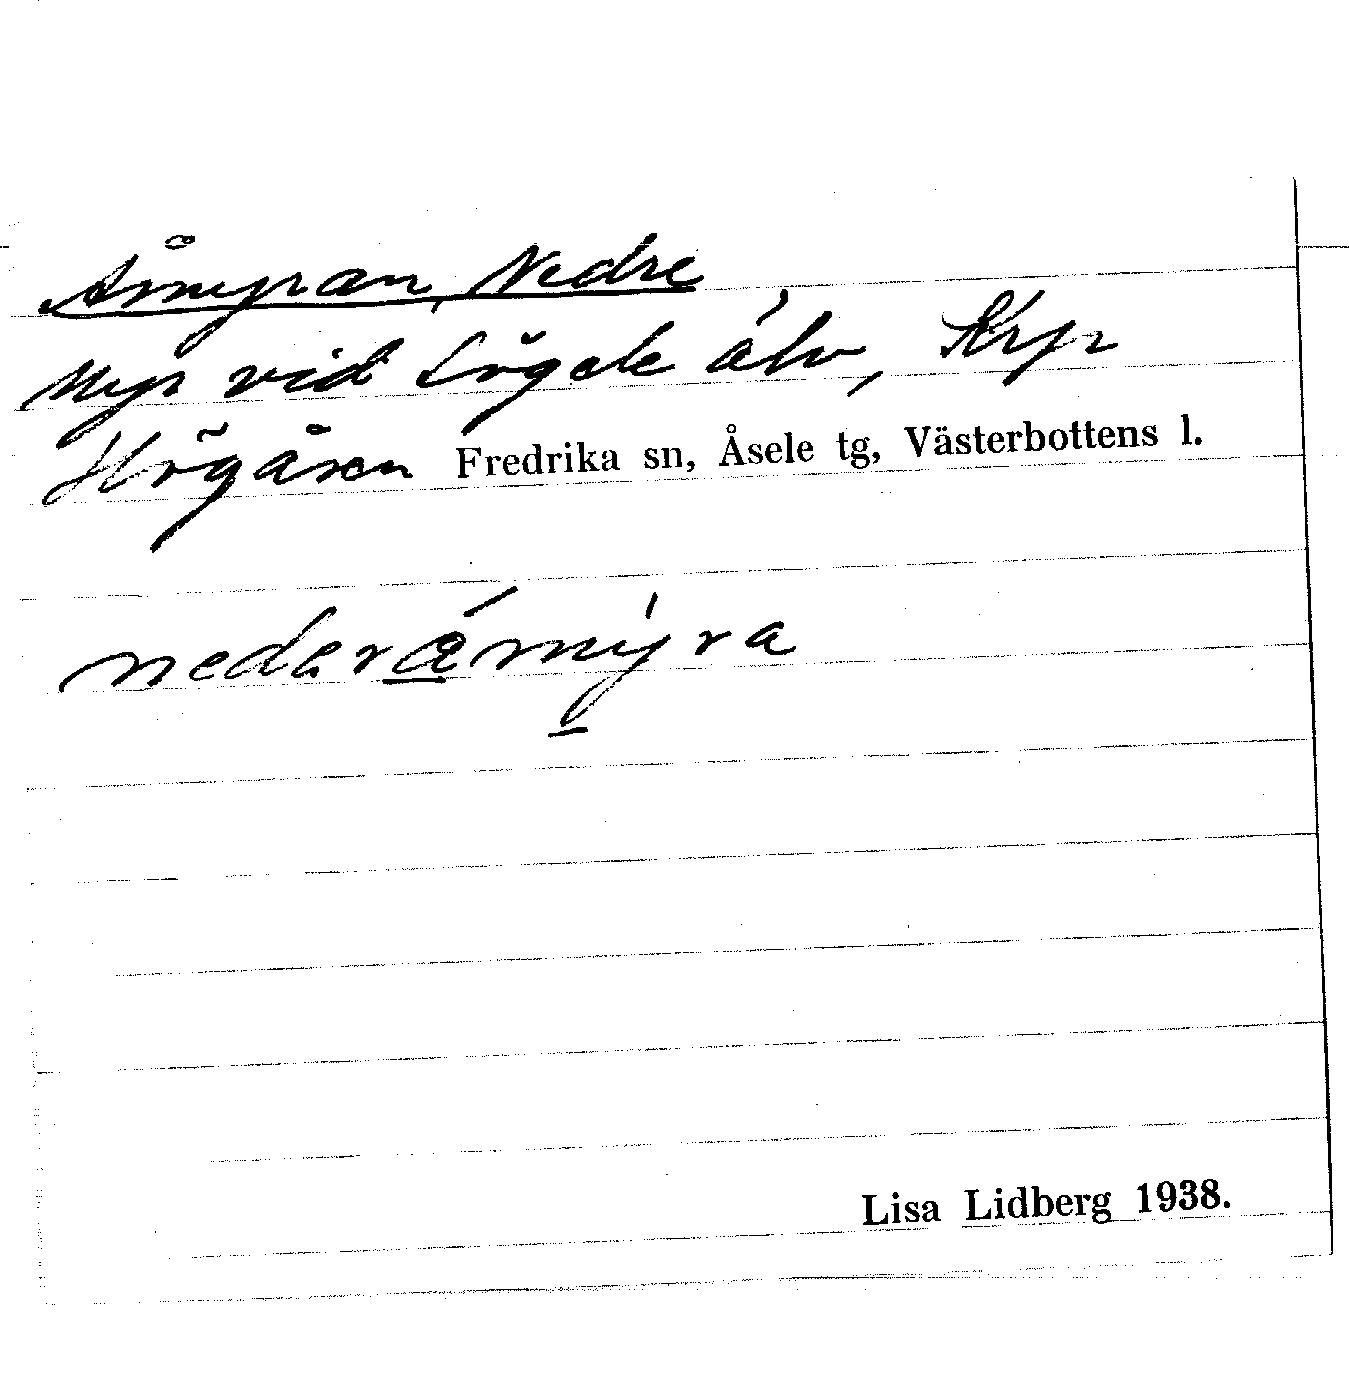 Åmyran, Nedre
Myr vid Lögde älv, Krpr
Högåsen Fredrika sn, Åsele tg, Västerbottens l.
nederåmyra
Lisa Lidberg 1938.